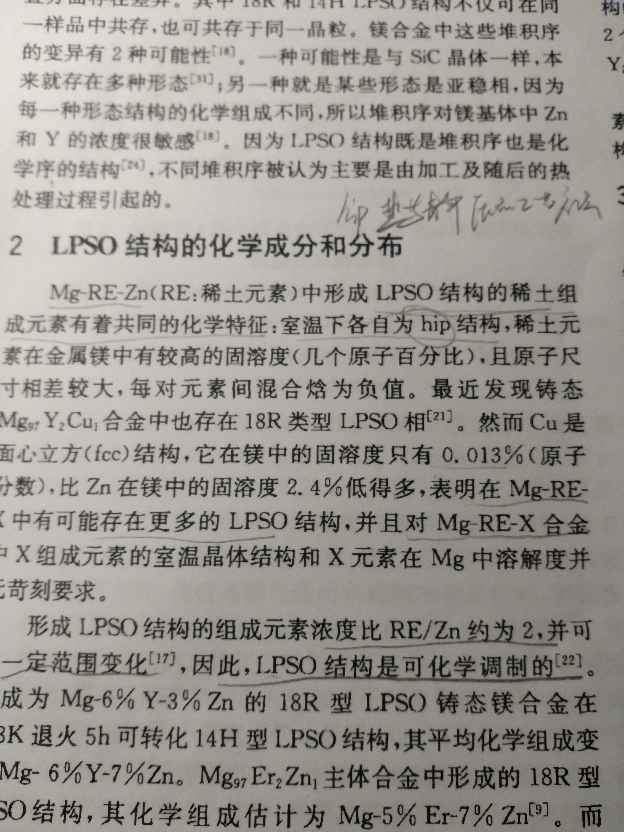 样品中共存,也可共存于同一晶粒。镁合金中这些堆积序
的变异有2种可能性[18]。一种可能性是与SiC晶体一样,本
来就存在多种形态[31];另一种就是某些形态是亚稳相,因为
每一种形态结构的化学组成不同,所以堆积序对镁基体中Zn
和Y的浓度很敏感[18]。因为LPSO结构既是堆积序也是化
学序的结构[24],不同堆积序被认为主要是由加工及随后的热
处理过程引起的。
2 LPSO结构的化学成分和分布
Mg-RE-Zn(RE:稀土元素)中形成LPSO结构的稀土组
成元素有着共同的化学特征:室温下各自为hip结构,稀土元
素在金属镁中有较高的固溶度(几个原子百分比),且原子尺
寸相差较大,每对元素间混合焓为负值。最近发现铸态
Mg97Y2Cu1合金中也存在18R类型LPSO相[21]。然而Cu是
面心立方(fcc)结构,它在镁中的固溶度只有0.013%(原子
分数),比Zn在镁中的固溶度2.4%低得多,表明在Mg-RE-
X中有可能存在更多的LPSO结构,并且对Mg-RE-X合金
中X组成元素的室温晶体结构和X元素在Mg中溶解度并
无苛刻要求。
形成LPSO结构的组成元素浓度比RE/Zn约为2,并可
一定范围变化[17],因此,LPSO结构是可化学调制的[22]。
成为Mg-6%Y-3%Zn的18R型LPSO铸态镁合金在
3K退火5h可转化14H型LPSO结构,其平均化学组成变
Mg-6%Y-7%Zn。Mg97Er2Zn1主体合金中形成的18R型
SO结构,其化学组成估计为Mg-5%Er-7%Zn[9]。而